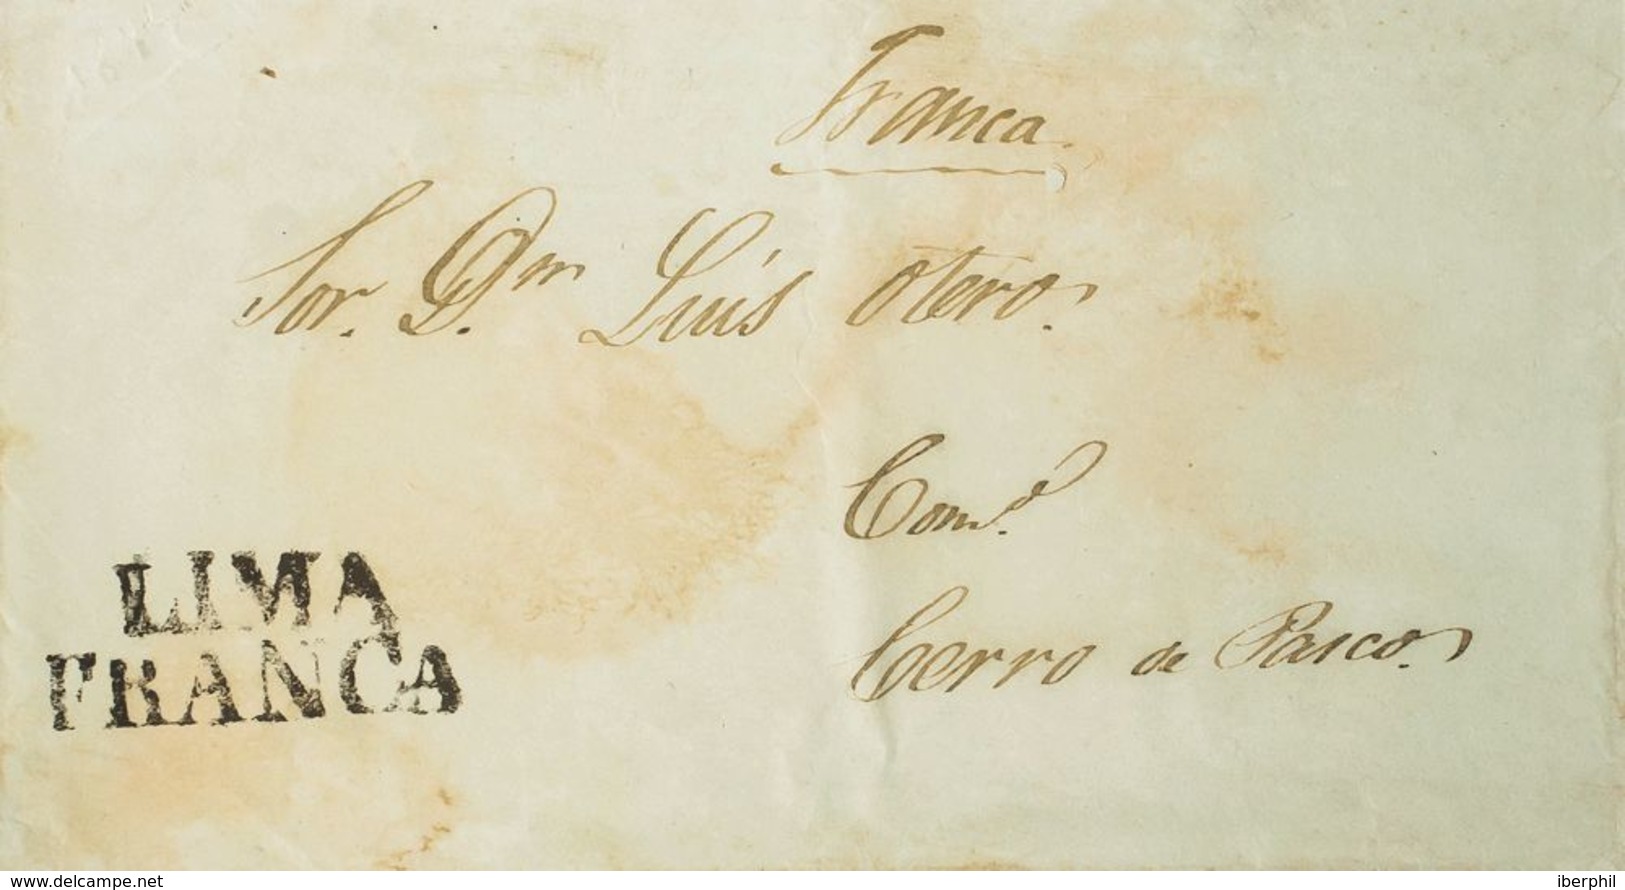 Franca.
Sor. Dn. Luis otero.
Com.o
Cerro de Pasco.
LIMA
FRANCA
www.delcampe.net
iberphil